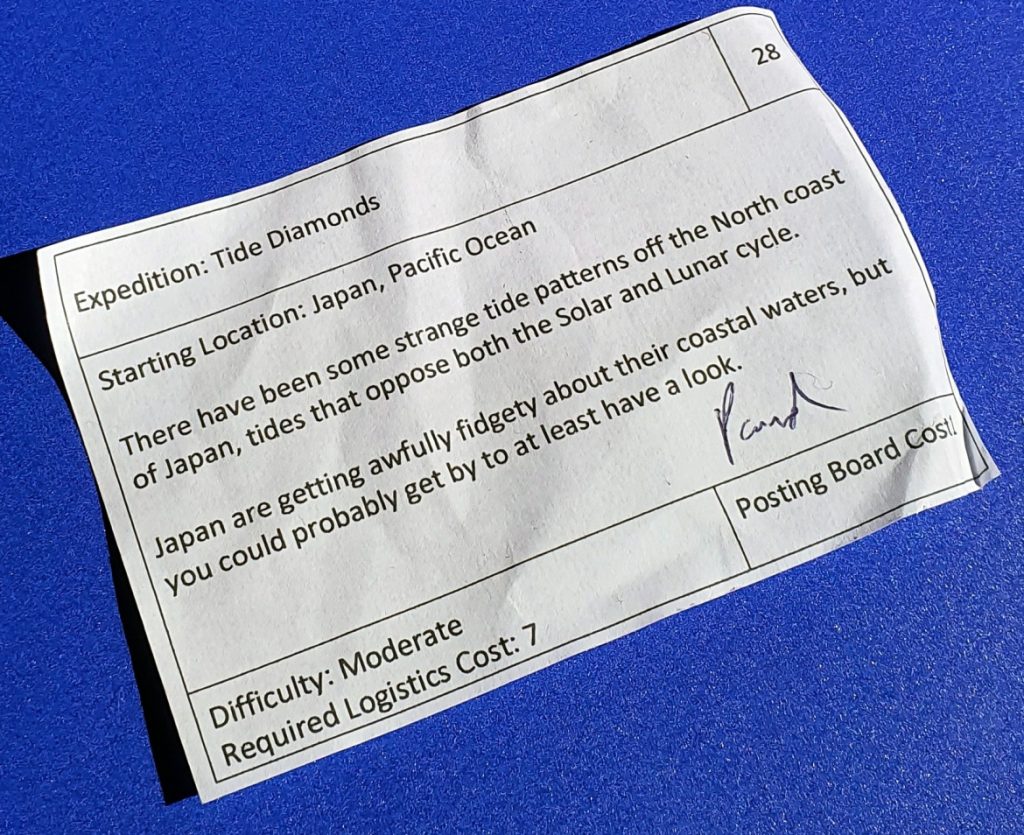 28
Expedition: Tide Diamonds
Starting Location: Japan, Pacific Ocean
There have been some strange tide patterns off the North coast
of Japan, tides that oppose both the Solar and Lunar cycle.
Japan are getting awfully fidgety about their coastal waters, but
you could probably get by to at least have a look.
Posting Board Cost:
Difficulty: Moderate
Required Logistics Cost: 7